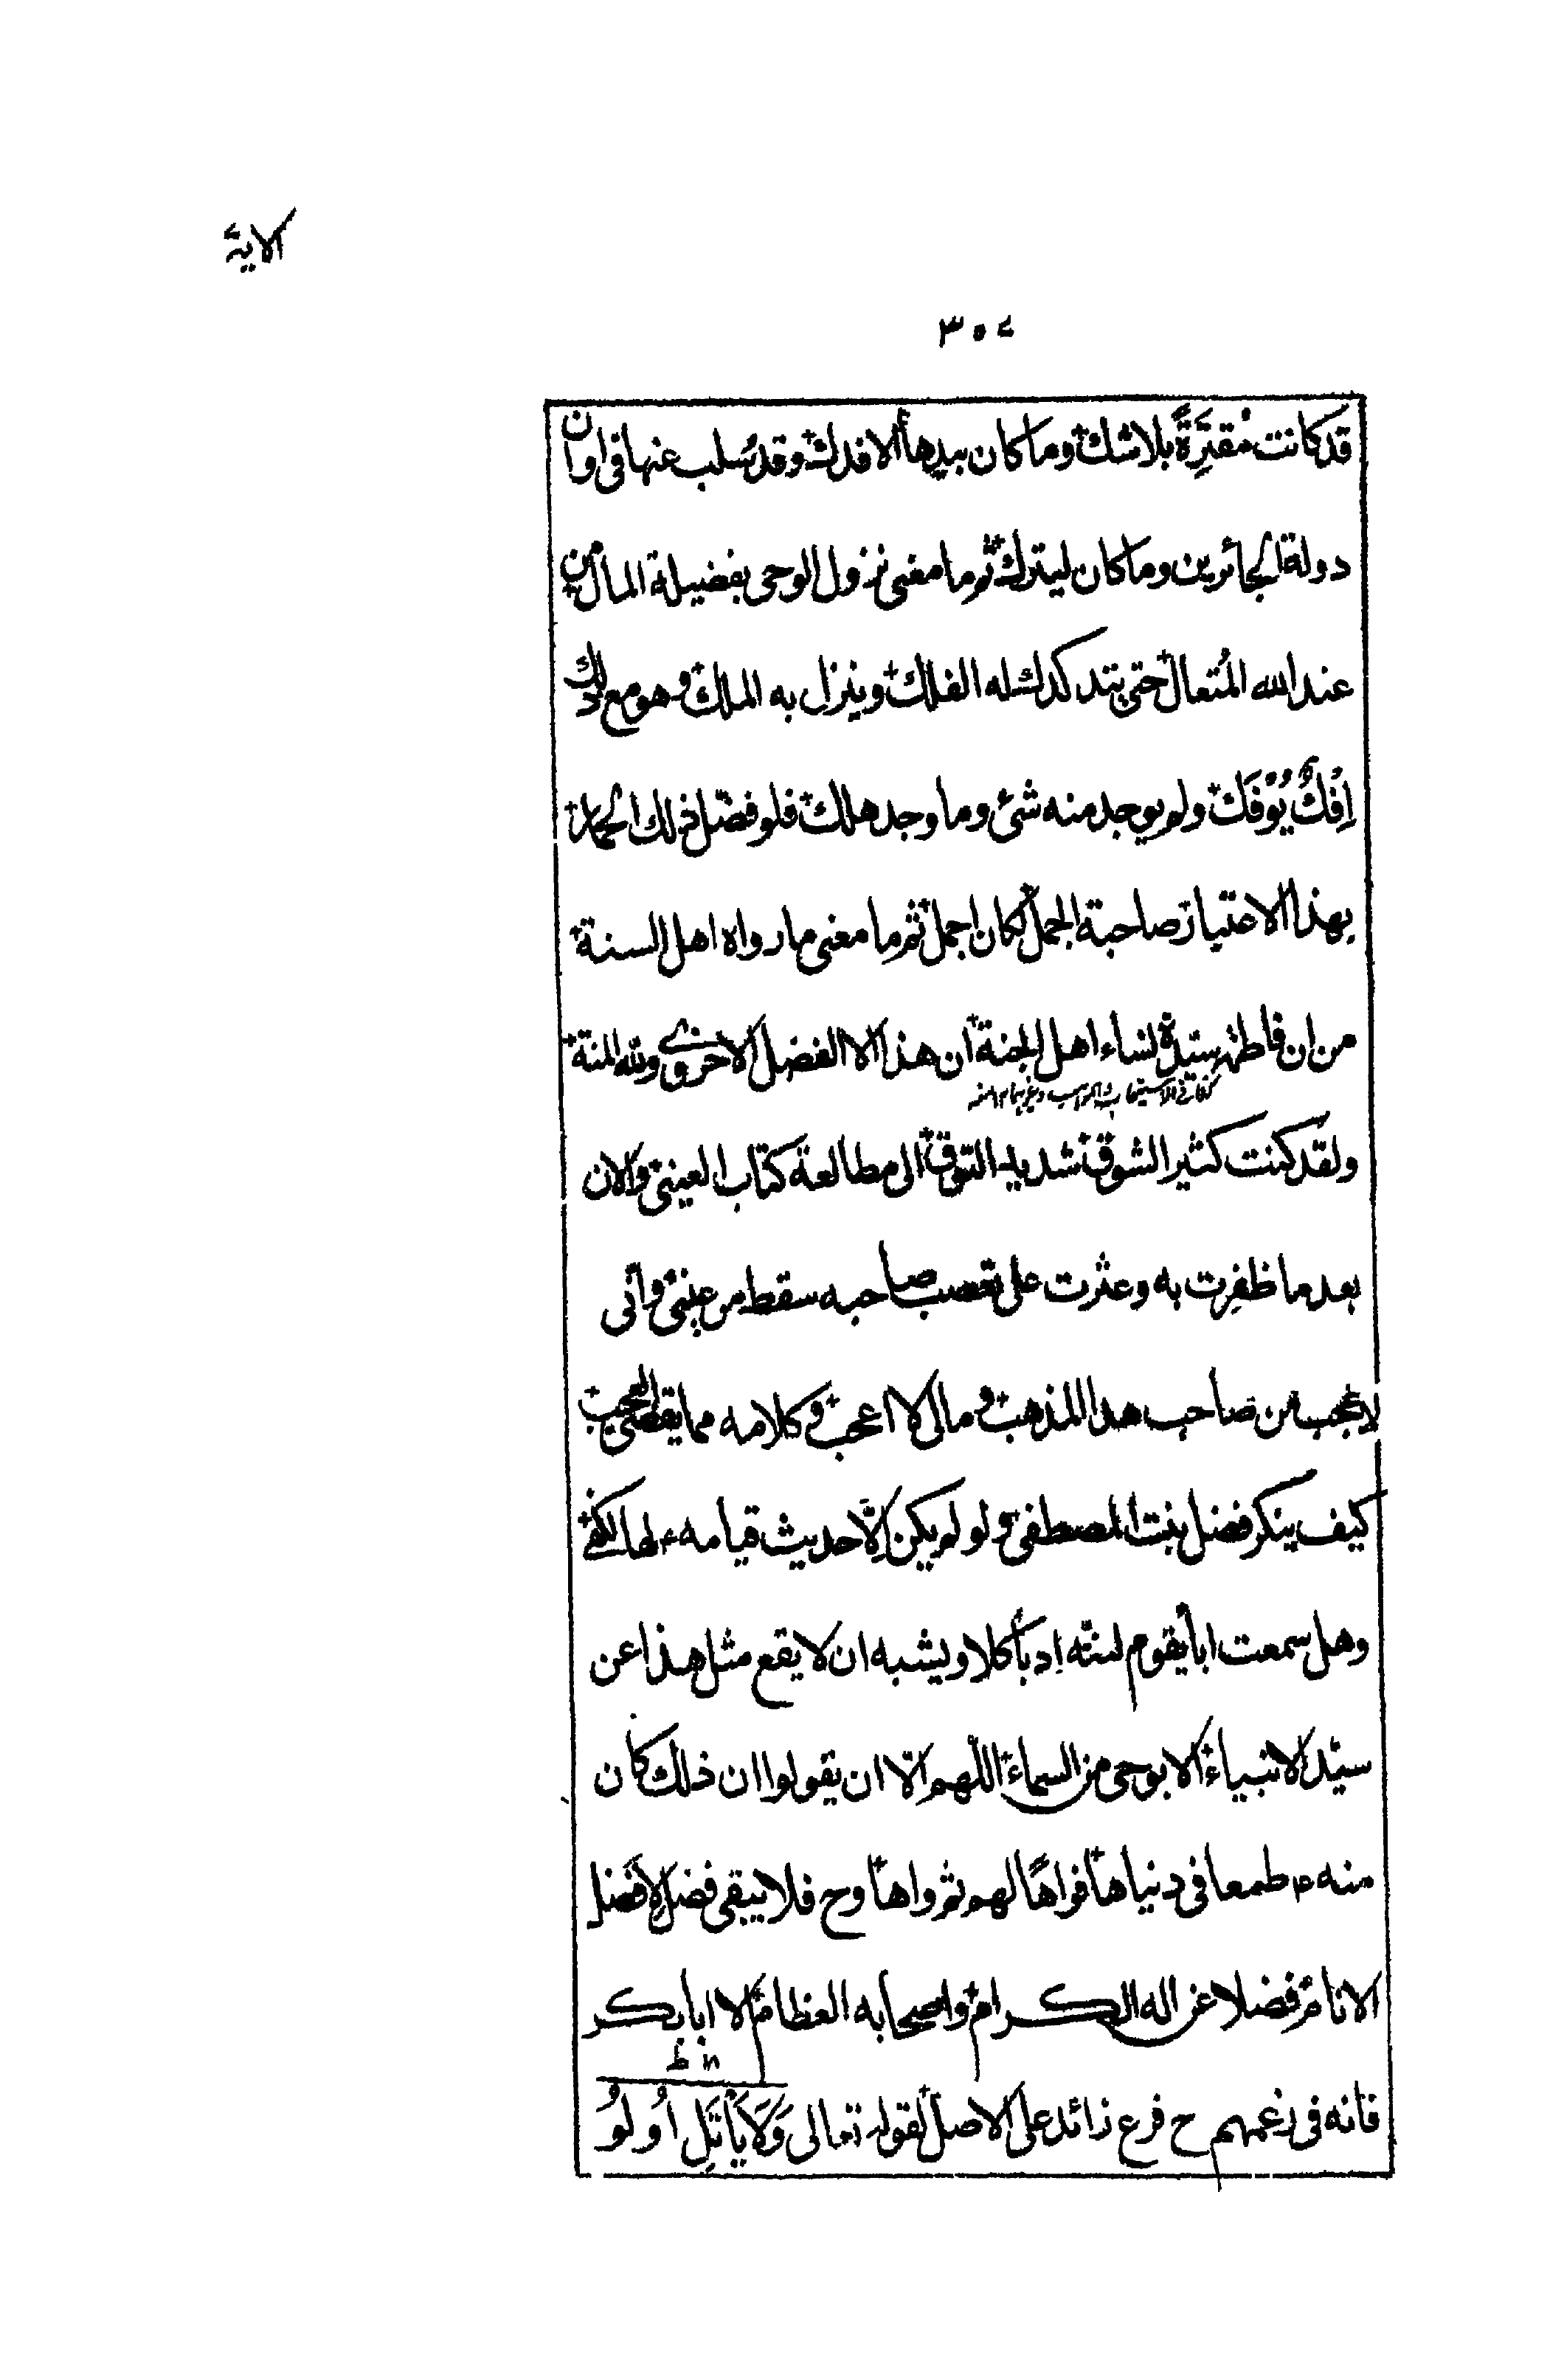 الاية
٣٠٤
قد كانت مُقتِرَةً بلا شك وما كان بيدها الا فدك وقد سُلب عنها في اوان
دولة الجائرين وما كان ليترك ثم ما معنى نزول الوحى بفضيلة المال من
عند الله المُتعال حتى يتدكدك له الفلك وينزل به الملك وهو مع ذلك
اِفْكٌ يُؤْفَك ولم يوجد منه شئ وما وجد هلك فلو فضّل ذلك الحمار
بهذا الاعتبار صاحبة الجمل لكان اجمل ثم ما معنى ما رواه اهل السنة
من ان فاطمة سيّدة نساء اهل الجنة ان هذا الا الفضل الاخروى ولله المنة
كما فى الاستيعاب
ولقد كنت كثير الشوق شديد التوق الى مطالعة كتاب العينى والان
بعد ما ظفِرت به وعثرت على تعصب صاحبه سقط من عينى وانّى
لاعجب من صاحب هذا المذهب ومالى لا اعجب وكلامه مما يقضى العجب
كيف ينكر فضل بنت المصطفى ولو لم يكن الّا حديث قيامه ؐ لها لكفى
وهل سمعت ابا يقوم لبنته ادبا كلا ويشبه ان لا يقع مثل هذا عن
سيّد الانبياء الا بوحى من السماء اللّهم الّا ان يقولوا ان ذلك كان
منه ؐ طمعا فى دنياها فواهًا لهم ثم واها وح فلا يبقى فضل لافضل
الانام فضلا عن اله الكرام واصحابه العظام الا ابا بكر
فانه فى زعمهم ح فرع زائد على الاصل لقوله تعالى وَلَا يَأتَلِ اُولُوُ